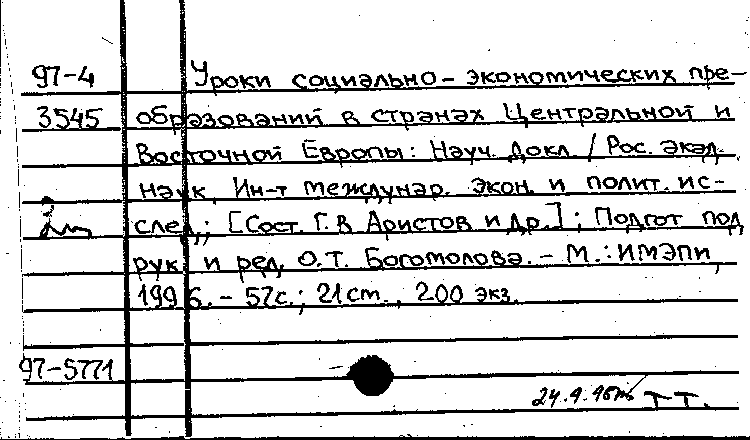 97-4 Уроки социально-экономических пре-
3545 образований в странах Центральной и
Восточной Европы: Науч. докл. / Рос. акад.
наук, Ин-т междунар. экон. и полит. ис-
след.; [Сост. Г.В. Аристов и др.]; Подгот под
рук. и ред. О.Т. Богомолова. - М.: ИМЭПИ,
1996. - 57с.; 21 см., 200 экз.
97-5771
24.9.96 ТТ.